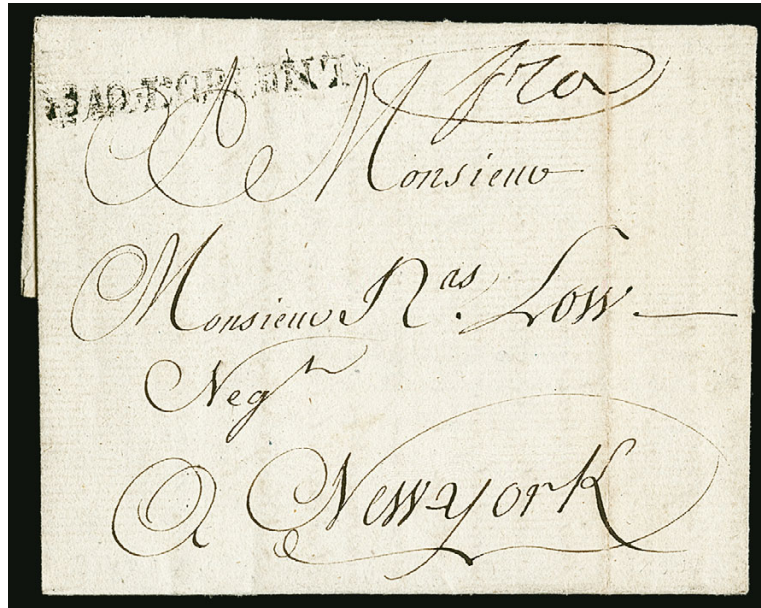 fco
A Monsieur
Monsieur Nas. Low
Negt
A New york